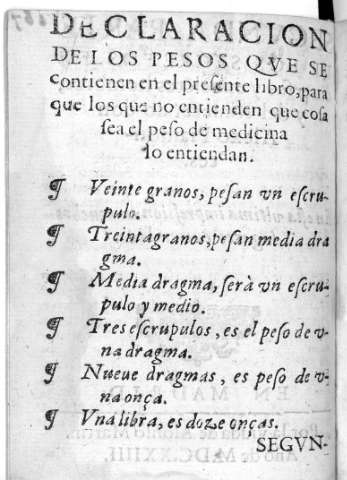 DECLARACION
DE LOS PESOS QVE SE
contienen en el presente libro, para
que los que no entienden que cosa
sea el peso de medicina
lo entiendan.
¶ Veinte granos, pesan vn escru-
pulo.
¶ Treinta granos, pesan media dra
gma.
¶ Media dragma, serà vn escru-
pulo y medio.
¶ Tres escrupulos, es el peso de v-
na dragma.
¶ Nueue dragmas, es peso de v-
na onça.
¶ Vna libra, es doze onças.
SEGVN-